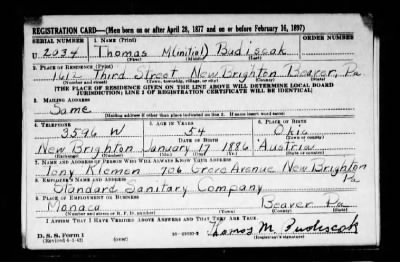 REGISTRATION CARD—(Men born on or after April 28, 1877 and on or before February 16, 1897)
SERIAL NUMBER 1. NAME (Print) ORDER NUMBER
U 2034 Thomas M(initial) Budiscak
(First) (Middle) (Last)
2. PLACE OF RESIDENCE (Print)
1612 Third Street New Brighton Beaver, Pa
(Number and street) (Town, township, village, or city) (County) (State)
[THE PLACE OF RESIDENCE GIVEN ON THE LINE ABOVE WILL DETERMINE LOCAL BOARD
JURISDICTION; LINE 2 OF REGISTRATION CERTIFICATE WILL BE IDENTICAL]
3. MAILING ADDRESS
Same
[Mailing address if other than place indicated on line 2. If same insert word same]
4. TELEPHONE 5. AGE IN YEARS 6. PLACE OF BIRTH
3596 W 54
DATE OF BIRTH
New Brighton January 17 1886 Austria
(Exchange) (Number) (Mo.) (Day) (Yr.) (State or country)
7. NAME AND ADDRESS OF PERSON WHO WILL ALWAYS KNOW YOUR ADDRESS
Tony Klemen 706 Avenue New Brighton
Pa
8. EMPLOYER'S NAME AND ADDRESS
Standard Sanitary Company
9. PLACE OF EMPLOYMENT OR BUSINESS
Monaca Beaver Pa
(Number and street or R. F. D. number) (Town) (County) (State)
I AFFIRM THAT I HAVE VERIFIED ABOVE ANSWERS AND THAT THEY ARE TRUE.
D. S. S. Form 1 Thomas M. Budiscak
(Revised 4-1-42) (over) (Registrant's signature)